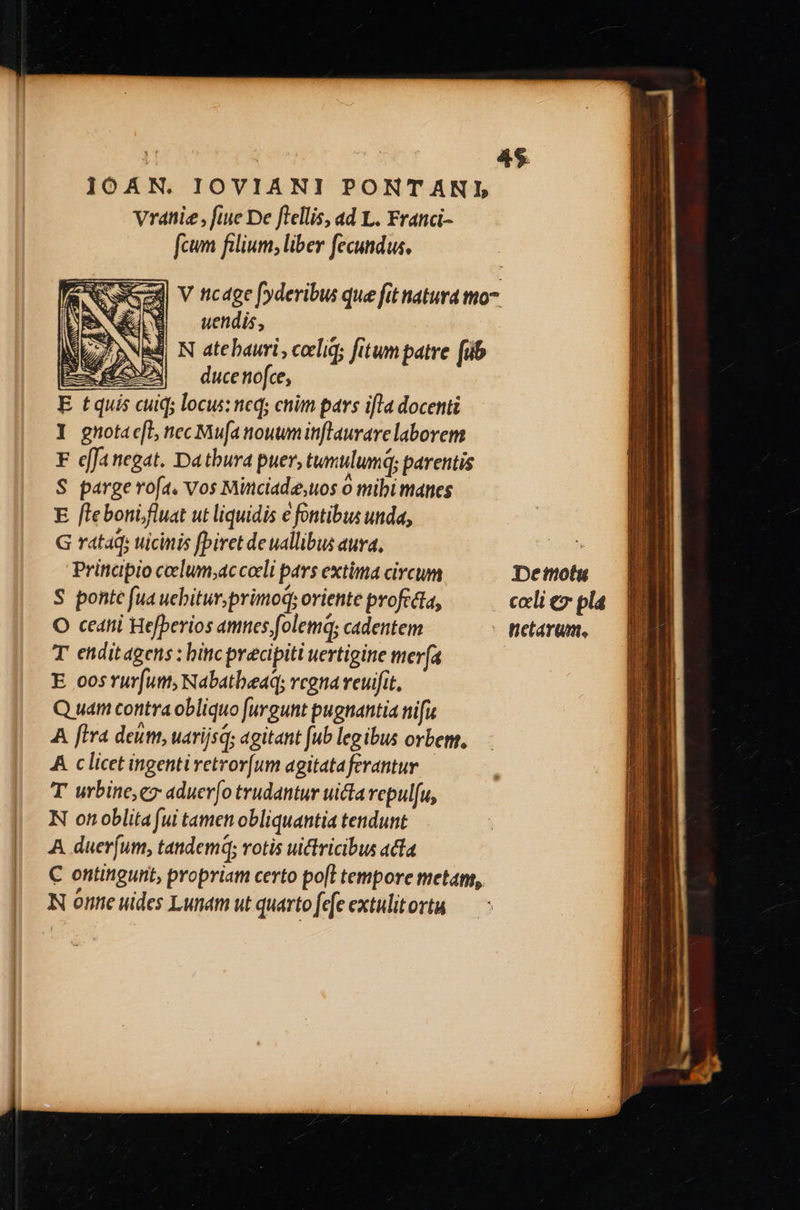 45
IOAN. IOVIANI PONTANI,
Vraniæ, ſiue De ſtellis, ad L. Franci-
ſcum filium, liber ſecundus.
V nc age ſyderibus quæ ſit natura mo-
uendis,
N ate hauri, cœliq; ſitum patre ſub
duce noſce,
E t quis cuiq; locus: neq; enim pars iſta docenti
I gnota eſt, nec Muſa nouum inſtaurare laborem
F eſſa negat. Da thura puer, tumulumq́; parentis
S parge roſa. Vos Minciadæ, uos ò mihi manes
E ſte boni, fluat ut liquidis è fontibus unda,
G rataq́; uicinis ſpiret de uallibus aura.
Principio cœlum, ac cœli pars extima circum
De motu
S ponte ſua uehitur, primoq́; oriente profecta,
cœli & pla
O ceani Heſperios amnes, ſolemq́; cadentem
netarum.
T endit agens: hinc præcipiti uertigine merſa
E oos rurſum, Nabathæaq́; regna reuiſit.
Q uam contra obliquo ſurgunt pugnantia niſu
A ſtra deûm, uarijsq́; agitant ſub legibus orbem.
A c licet ingenti retrorſum agitata ferantur
T urbine, & aduerſo trudantur uicta repulſu,
N on oblita ſui tamen obliquantia tendunt
A duerſum, tandemq́; rotis uictricibus acta
C ontingunt, propriam certo poſt tempore metam,
N ónne uides Lunam ut quarto ſeſe extulit ortu